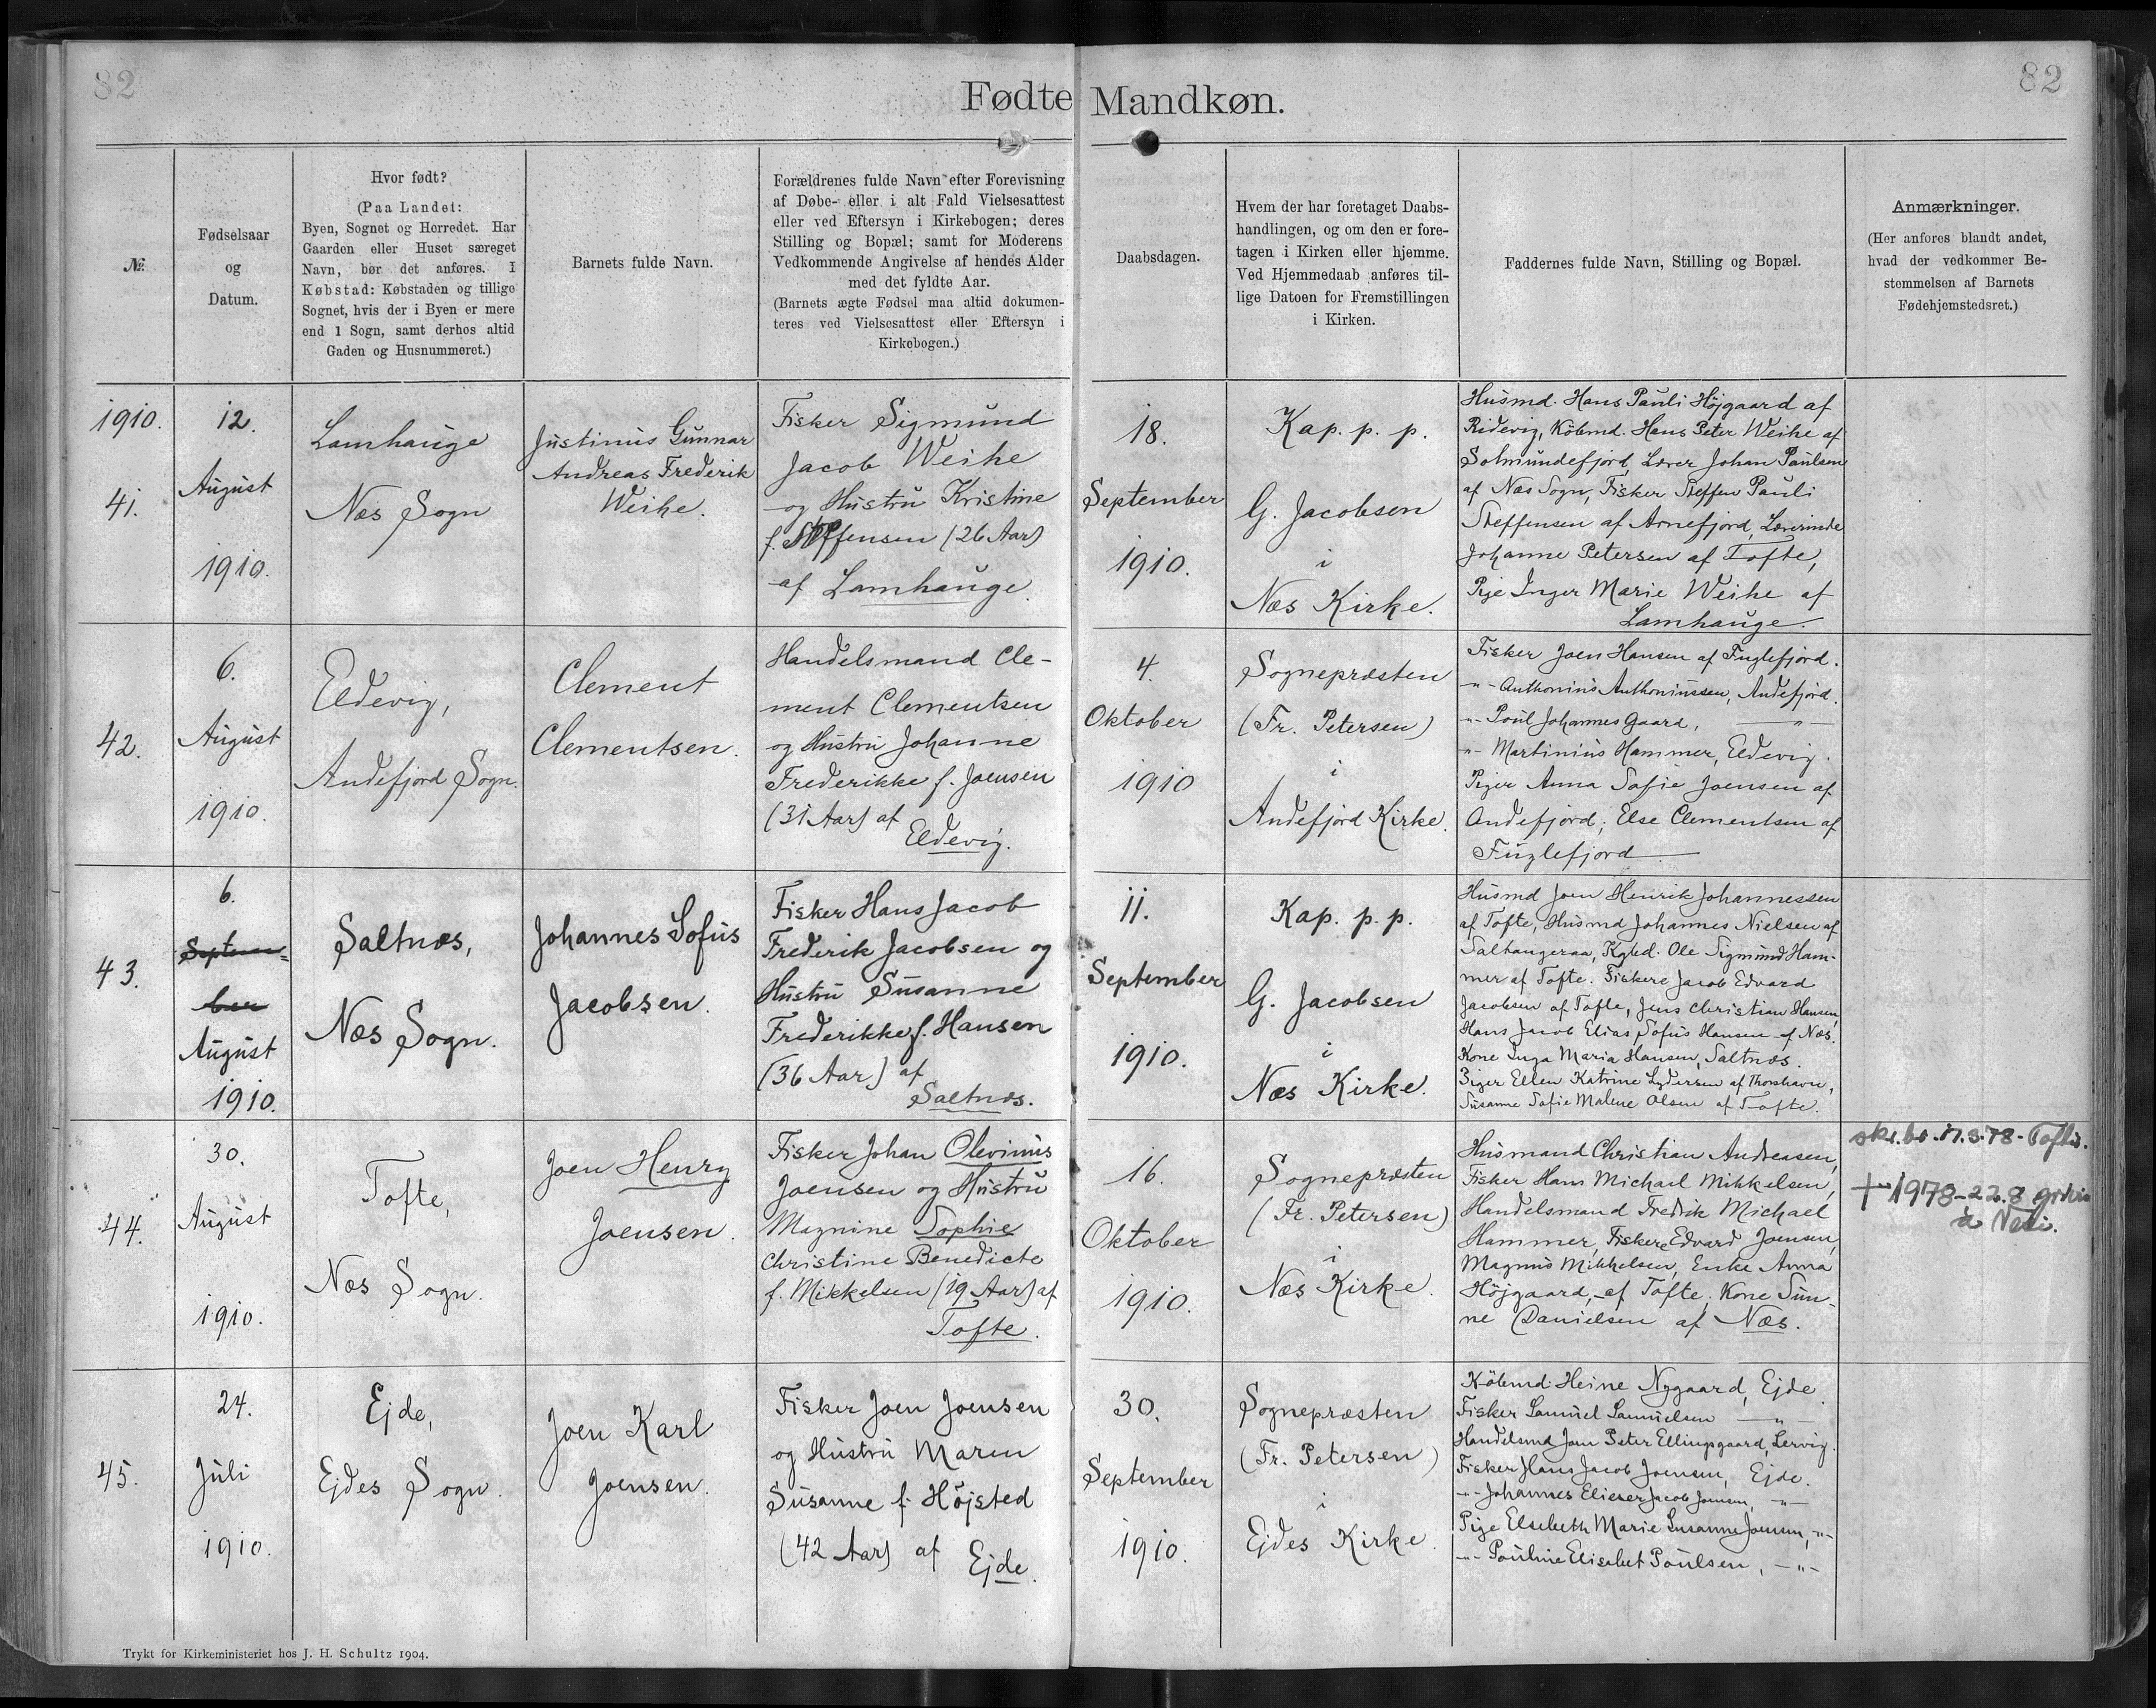 82
82
Fødte Mandkøn.
№
Fødselsaar
og
Datum.
Hvor født?
(Paa Landet:
Byen, Sognet og Herredet. Har
Gaarden eller Huset særeget
Navn, bør det anføres. I
Købstad: Købstaden og tillige
Sognet, hvis der i Byen er mere
end 1 Sogn, samt derhos altid
Gaden og Husnummeret.)
Barnets fulde Navn.
Forældrenes fulde Navn efter Forevisning
af Døbe- eller i alt Fald Vielsesattest
eller ved Eftersyn i Kirkebogen; deres
Stilling og Bopæl; samt for Moderens
Vedkommende Angivelse af hendes Alder
med det fyldte Aar.
(Barnets ægte Fødsel maa altid dokumen-
teres ved Vielsesattest eller Eftersyn i
Kirkebogen.)
Daabsdagen.
Hvem der har foretaget Daabs-
handlingen, og om den er fore-
tagen i Kirken eller hjemme.
Ved Hjemmedaab anføres til-
lige Datoen for Fremstillingen
i Kirken.
Faddernes fulde Navn, Stilling og Bopæl.
Anmærkninger.
(Her anføres blandt andet,
hvad der vedkommer Be-
stemmelsen af Barnets
Fødehjemstedsret.)
1910.
41.
12.
August
1910.
Lamhauge
Næs Sogn
Justinus Gunnar
Andreas Frederik
Weihe.
Fisker Sigmund
Jacob Weihe
og Hustru Kristine
f. Steffensen (26 Aar)
af Lamhauge.
18.
September
1910.
Kap. p. p.
G. Jacobsen
i
Næs Kirke.
Husmd. Hans Pauli Højgaard af
Ridevig, Købmd. Hans Peter Weihe af
Solmundefjord, Lærer Johan Paulsen
af Næs Sogn, Fisker Steffen Pauli
Steffensen af Arnefjord, Lærerinde
Johanne Petersen af Tofte,
Pige Inger Marie Weihe af
Lamhauge.
42.
6.
August
1910.
Eldevig,
Andefjord Sogn.
Clement
Clementsen.
Handelsmand Cle-
ment Clementsen
og Hustru Johanne
Frederikke f. Joensen
(31 Aar) af
Eldevig.
4.
Oktober
1910
Sognepræsten
(Fr. Petersen)
i
Andefjord Kirke.
Fisker Joen Hansen af Fuglefjord.
-"- Anthonius Anthoniussen, Andefjord.
-"- Poul Johannes Gaard, -"-
-"- Martinius Hammer, Eldevig.
Piger Anna Sofie Joensen af
Andefjord; Else Clementsen af
Fuglefjord
43.
6.
Septem=
ber
August
1910.
Saltnæs,
Næs Sogn.
Johannes Sofus
Jacobsen.
Fisker Hans Jacob
Frederik Jacobsen og
Hustru Susanne
Frederikke f. Hansen
(36 Aar) af
Saltnæs.
11.
September
1910.
Kap. p. p.
G. Jacobsen
i
Næs Kirke.
Husmd Joen Henrik Johannessen
af Tofte, Husmd Johannes Nielsen af
Saltangeraa, Kgbd. Ole Sigmund Ham-
mer af Tofte. Fiskere Jacob Edvard
Jacobsen af Tofte, Jens Christian Hansen,
Hans Jacob Elias Sofus Hansen af Næs.
Kone Inga Maria Hansen, Saltnæs.
Piger Ellen Katrine Lydersen af Thorshavn,
Susanne Sofie Malene Olsen af Tofte.
44.
30.
August
1910.
Tofte,
Næs Sogn.
Joen Henry
Joensen.
Fisker Johan Olevinus
Joensen og Hustru
Magnine Sophie
Christine Benedicte
f. Mikkelsen (19 Aar) af
Tofte.
16.
Oktober
1910.
Sognepræsten
(Fr. Petersen)
i
Næs Kirke.
Husmand Christian Andreasen,
Fisker Hans Michael Mikkelsen,
Handelsmand Fredrik Michael
Hammer, Fiskere Edvard Joensen,
Magnus Mikkelsen, Enke Anna
Højgaard, af Tofte, Kone Sun-
ne Danielsen af Næs.
17.3.78-
+ 1978-22.8
45.
24.
Juli
1910.
Ejde,
Ejdes Sogn.
Joen Karl
Joensen.
Fisker Joen Joensen
og Hustru Maren
Susanne f. Højsted
(42 Aar) af Ejde.
30.
September
1910.
Sognepræsten
(Fr. Petersen)
i
Ejdes Kirke.
Købmd. Heine Nygaard, Ejde.
Fisker Samuel Samuelsen -"-
Handelsmd Joen Peter Ellingsgaard, Lervig.
Fisker Hans Jacob Joensen, Ejde.
-"- Johannes Elieser Jacob Joensen, -"-
Pige Elsebeth Marie Susanne Joensen, -"-
-"- Pouline Elisebet Poulsen, -"-
Trykt for Kirkeministeriet hos J. H. Schultz 1904.